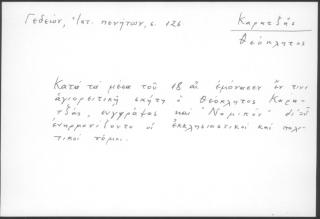 Γεδεών, Ἰατ. πενήτων, σ. 126
Καρατζᾶς
Θεόκλητος
Κατά τά μέσα τοῦ 18 αἰ. ἐμόνασεν ἔν τινι
ἁγιορειτικῇ σκήτῃ ὁ Θεόκλητος Καρα-
τζᾶς, συγγράψας καί "Νομικόν" δι' οὗ
ἐνηρμονίζοντο οἱ ἐκκλησιαστικοί καί πολι-
τικοί νόμοι.